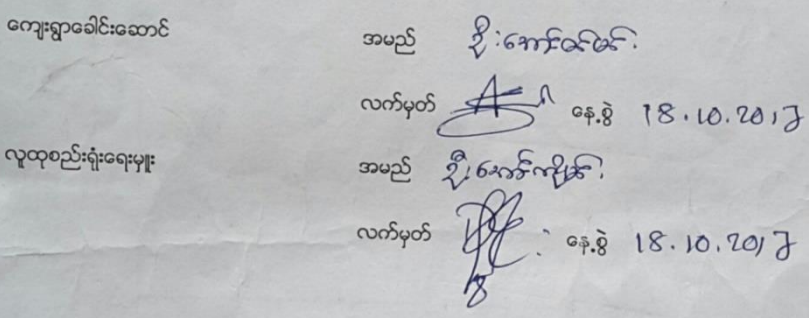 ကျေးရွာခေါင်းဆောင် အမည် ဦးအောင်ဝင်းမင်း
လက်မှတ် နေ့စွဲ 18.10.2017
လူထုစည်းရုံးရေးမှူး အမည် ဦးအောင်ကျိုင်း
လက်မှတ် နေ့စွဲ 18.10.2017